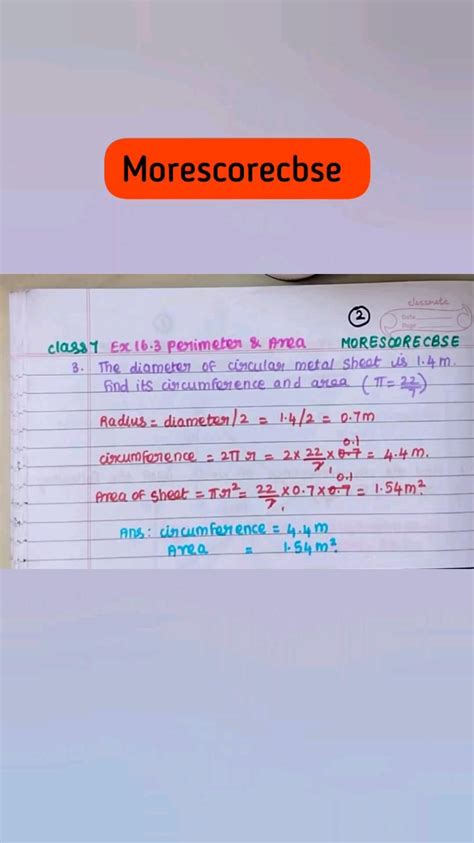 Morescorecbse
classmate
Date
Page
2
class 7 Ex 16.3 Perimeter & Area MORESCORECBSE
3. The diameter of circular metal sheet is 1.4 m.
find its circumference and area (π = 22/7)
Radius = diameter/2 = 1.4/2 = 0.7m
circumference = 2πr = 2 × 22/7 × 0.7 0.1 = 4.4 m.
Area of sheet = πr² = 22/7 × 0.7 × 0.7 0.1 = 1.54 m².
Ans: circumference = 4.4 m
Area = 1.54 m².